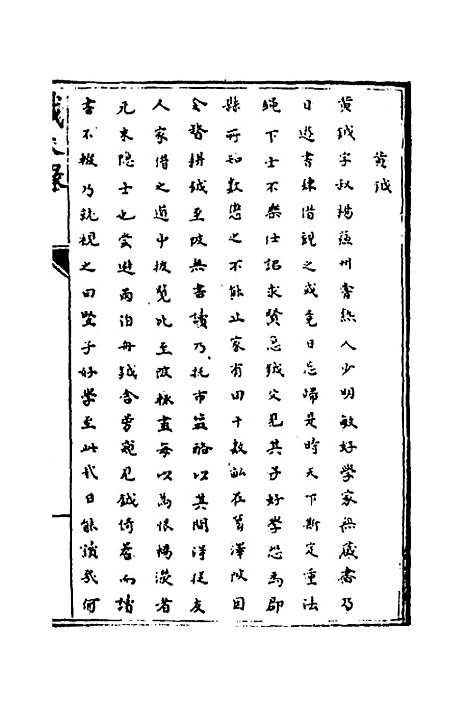 黃鉞
黃鉞字叔揚蘇州常熟人少明敏好學家無藏書乃
日遊書肆借觀之或竟日忘歸是時天下新定重法
繩下士不樂仕詔求賢急鉞父見其子好學恐為郡
縣所知數懲之不能止家有田十數畝在葛澤陂因
令督耕鉞至陂無書讀乃托市鹽酪以其間得從友
人家借之道中披覽比至陂輒盡每以為恨楊濙者
元末隱士也嘗遊雨泊舟鉞舍旁窺見鉞倚巷而讀
書不輟乃就視之曰豎子好學至此哉日能讀幾何